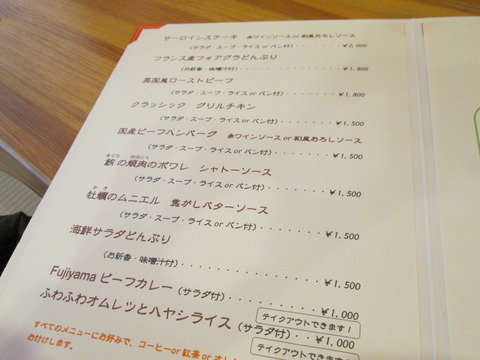 サーロインステーキ 赤ワインソース or 和風おろしソース
(サラダ・スープ・ライス or パン付) ・・・・・・・・ ¥2,000
フランス産フォアグラどんぶり
(お新香・味噌汁付) ・・・・・・・・・・・・・・・ ¥1,800
英国風ローストビーフ
(サラダ・スープ・ライス or パン付) ・・・・・・・・ ¥1,800
クラッシック グリルチキン
(サラダ・スープ・ライス or パン付) ・・・・・・・・ ¥1,500
国産ビーフハンバーグ 赤ワインソース or 和風おろしソース
(サラダ・スープ・ライス or パン付) ・・・・・・・・ ¥1,500
鮪の頬肉のポワレ シャトーソース
(サラダ・スープ・ライス or パン付) ・・・・・・・・ ¥1,500
牡蠣のムニエル 焦がしバターソース
(サラダ・スープ・ライス or パン付) ・・・・・・・・ ¥1,500
海鮮サラダどんぶり
(お新香・味噌汁付) ・・・・・・・・・・・・・・・ ¥1,500
Fujiyama ビーフカレー (サラダ付) ・・・・・・・・ ¥1,000
テイクアウトできます!
ふわふわオムレツとハヤシライス (サラダ付) ・・ ¥1,000
テイクアウトできます
すべてのメニューにお好みで、コーヒー or 紅茶 or オレ
お付けします。